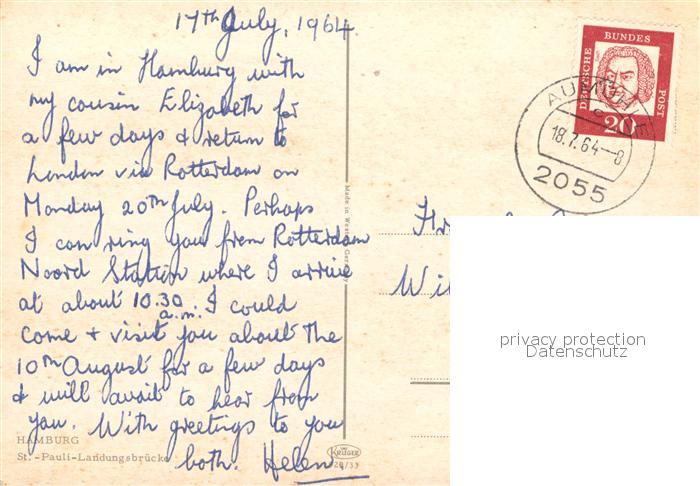 17th July, 1964.
I am in Hamburg with
my cousin Elizabeth for
a few days & return to
London via Rotterdam on
Monday 20th July. Perhaps
I can ring you from Rotterdam
Noord Station where I arrive
at about 10.30 a.m. I could
come & visit you about the
10th August for a few days
& will await to hear from
you. With greetings to you
both. Helen.
HAMBURG
St. -Pauli-Landungsbrücke
Made in Western Germany
KRÜGER
DEUTSCHE
BUNDES
POST
20
AUMÜHLE
18.7.64-8
2055
privacy protection
Datenschutz